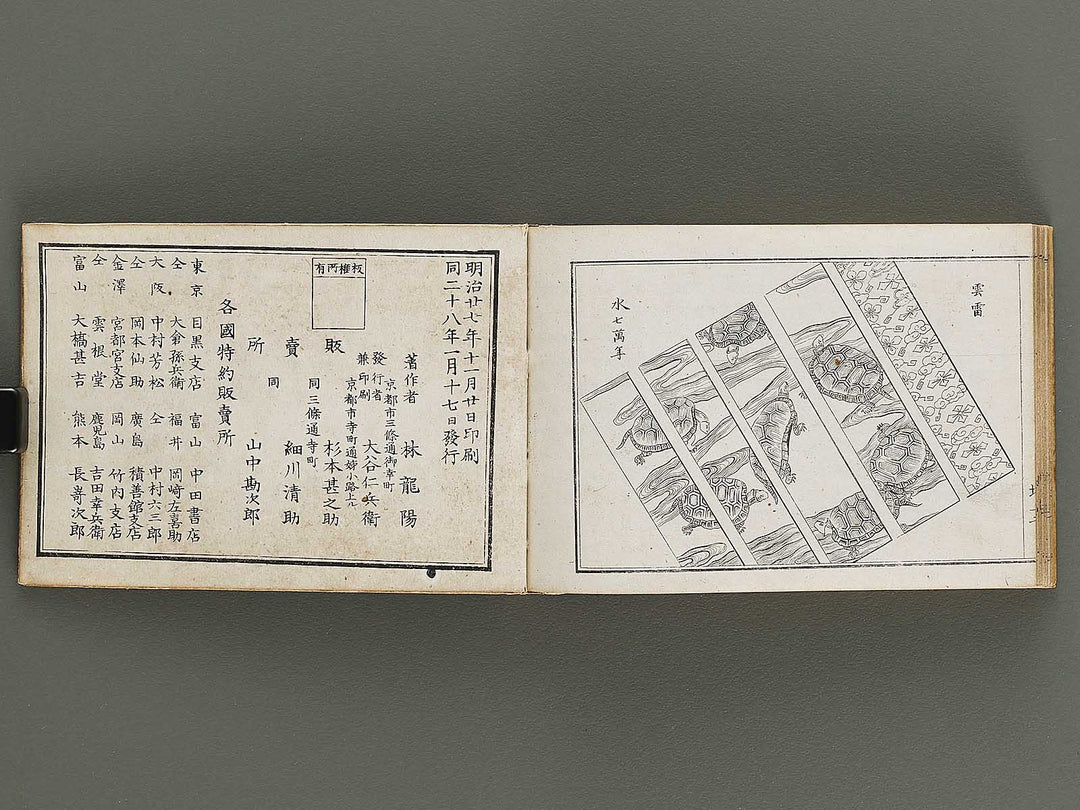 雲雷
水七萬年
明治廿七年十一月廿日印刷
同二十八年一月十七日發行
著作者 林龍陽
京都市三條通御幸町
發行者兼印刷 大谷仁兵衛
京都市寺町通姉小路上ル
版權所有
販賣所
杉本甚之助
同三條通寺町
細川清助
同
山中勘次郎
各國特約販賣所
東京 目黒支店 富山 中田書店
仝 大倉孫兵衛 福井 岡崎左喜助
大阪 中村芳松 仝 中村六三郎
仝 岡本仙助 廣島 積善館支店
金澤 宮都宮支店 岡山 竹内支店
仝 雲根堂 鹿児島 吉田幸兵衛
富山 大橘甚吉 熊本 長嵜次郎